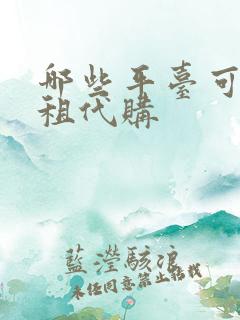 哪些平臺可
租代購
藍瀅駭浪
未經同意禁止轉載